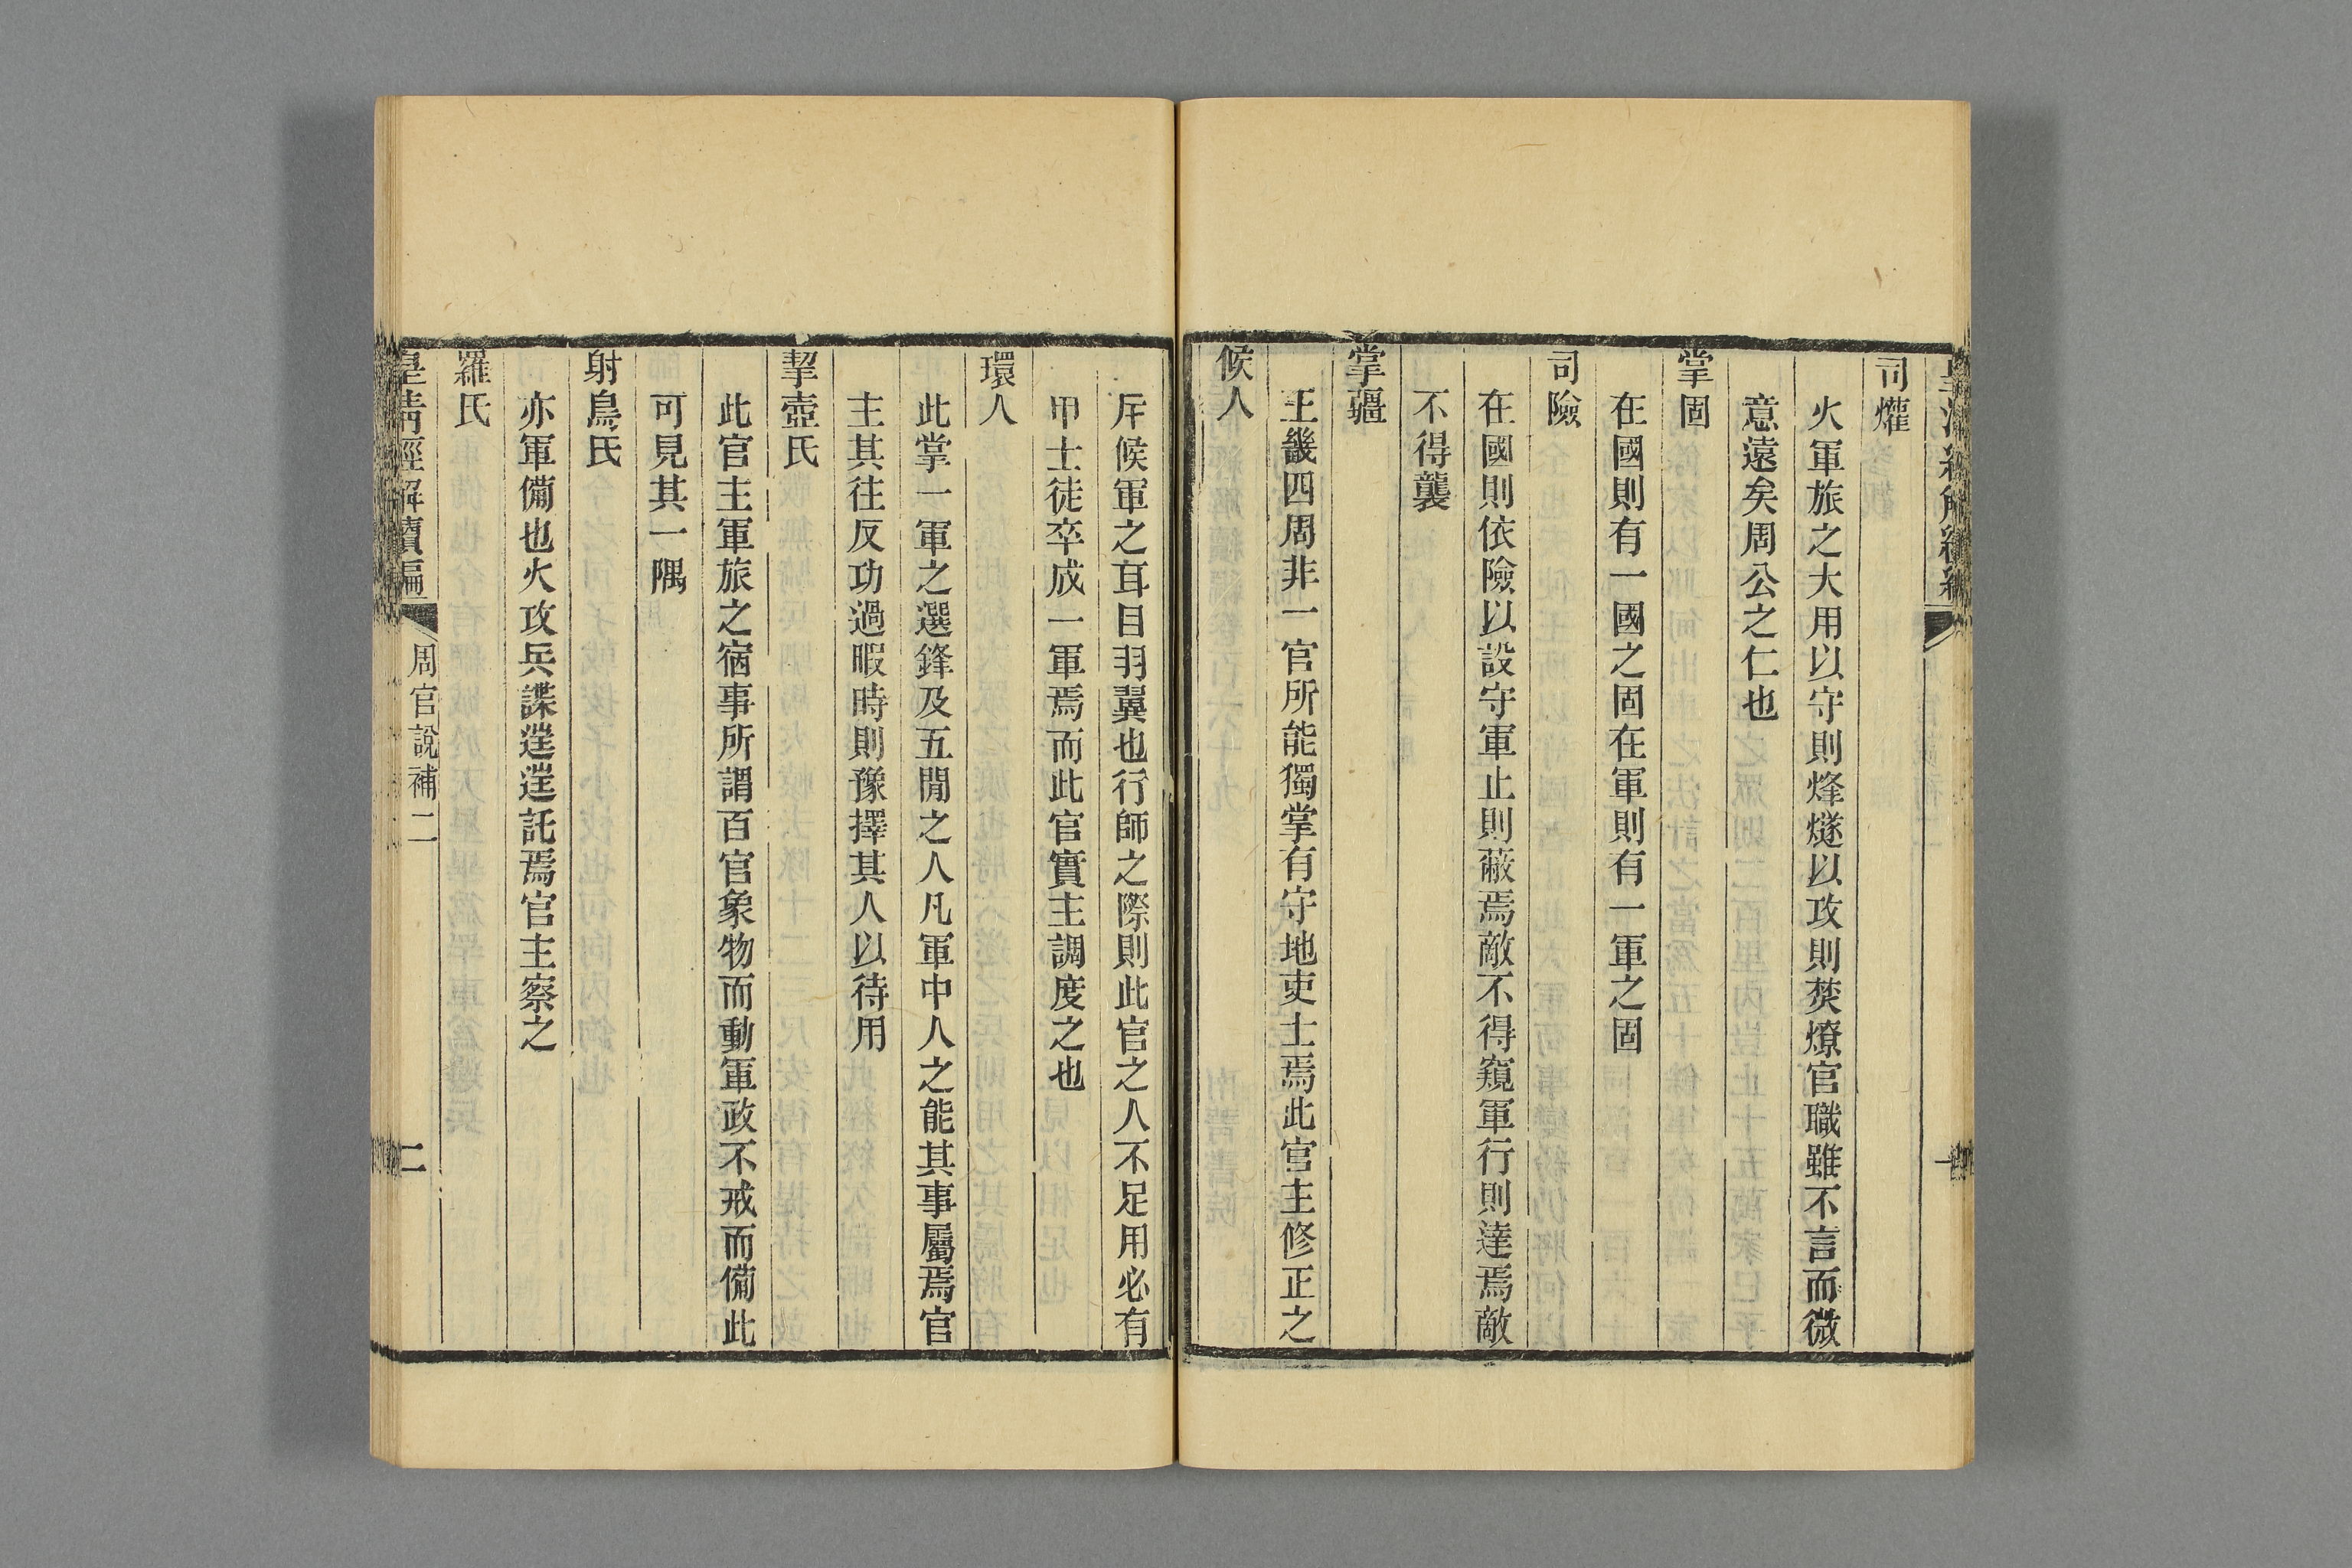 司爟
火軍旅之大用以守則烽燧以攻則焚燎官職雖不言而微
意遠矣周公之仁也
掌固
在國則有一國之固在軍則有一軍之固
司險
在國則依險以設守軍止則蔽焉敵不得窺軍行則達焉敵
不得襲
掌疆
王畿四周非一官所能獨掌有守地吏士焉此官主修正之
候人
斥候軍之耳目羽翼也行師之際則此官之人不足用必有
甲士徒卒成一軍焉而此官實主調度之也
環人
此掌一軍之選鋒及五閒之人凡軍中人之能其事屬焉官
主其往反功過暇時則豫擇其人以待用
挈壺氏
此官主軍旅之宿事所謂百官象物而動軍政不戒而備此
可見其一隅
射鳥氏
亦軍備也火攻兵諜往往託焉官主察之
羅氏
皇清經解續編
周官說補二
二